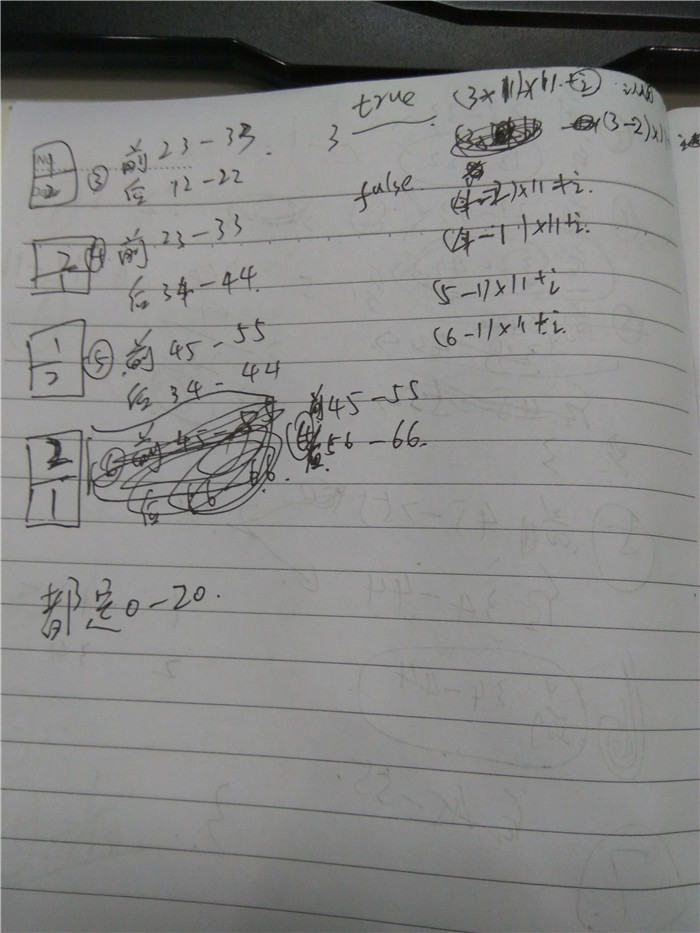 true (3×11)×11+i
1 ③ 前 23-33 3
2 后 12-22
false (4-2)×11+i.
2 ④ 前 23-33 (4-1)×11+i.
1 后 34-44.
(5-1)×11+i
1 ⑤ 前 45-55 (6-1)×11+i.
2 后 34-44
2 ⑥ 前 45-55 前45-55
1 后 56-66. 后56-66.
都是0-20.